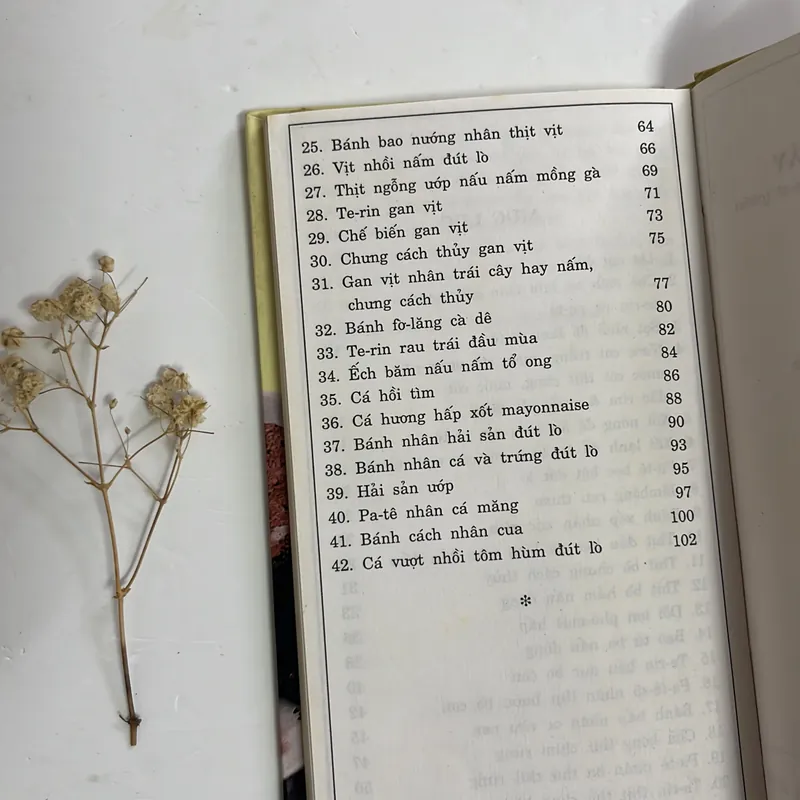 25. Bánh bao nướng nhân thịt vịt 64
26. Vịt nhồi nấm đút lò 66
27. Thịt ngỗng ướp nấu nấm mồng gà 69
28. Te-rin gan vịt 71
29. Chế biến gan vịt 73
30. Chưng cách thủy gan vịt 75
31. Gan vịt nhân trái cây hay nấm,
chưng cách thủy 77
32. Bánh fờ-lăng cà dê 80
33. Te-rin rau trái đầu mùa 82
34. Ếch băm nấu nấm tổ ong 84
35. Cá hồi tìm 86
36. Cá hương hấp xốt mayonnaise 88
37. Bánh nhân hải sản đút lò 90
38. Bánh nhân cá và trứng đút lò 93
39. Hải sản ướp 95
40. Pa-tê nhân cá măng 97
41. Bánh cách nhân cua 100
42. Cá vượt nhồi tôm hùm đút lò 102
*